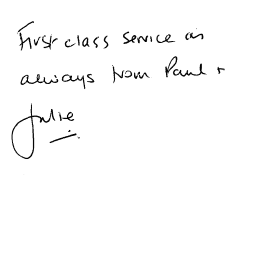 First class service as
always from Paul +
Julie